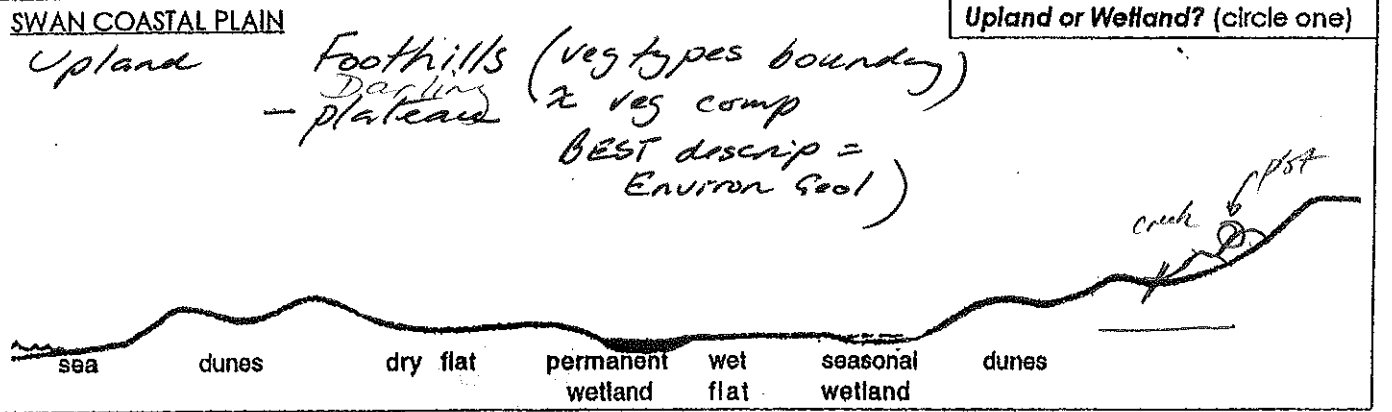 SWAN COASTAL PLAIN
Upland or Wetland? (circle one)
Upland Foothills (veg types boundary)
Darling
- plateau veg comp
BEST descrip =
Environ Geol)
plot
creek
sea dunes dry flat permanent wet seasonal dunes
wetland flat wetland